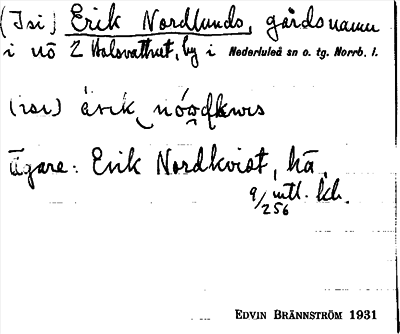 (Isi) Erik Nordlunds, gårdsnamn
i nö 2 Holsvattnet, by i Nederluleå sn o. tg. Norrb. l.
(isi)
Ägare: Erik Nordkvist, hä.
9/256 mtl. kb.
EDVIN BRÄNNSTRÖM 1931